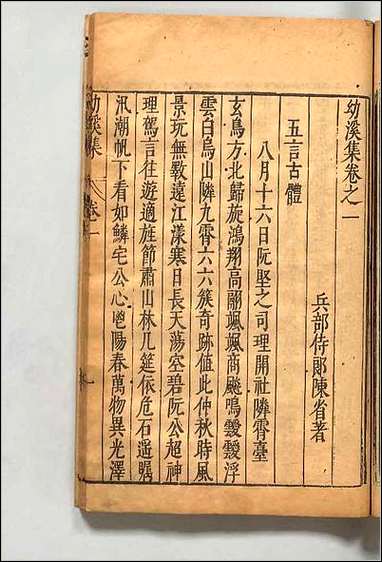 幼溪集卷之一
兵部侍郎陳省著
五言古體
八月十六日阮堅之司理開社隣霄臺
玄鳥方北歸旋鴻翔高關颯颯商飈鳴靉靉浮
雲白烏山隣九霄六六簇奇跡值此仲秋時風
景玩無斁遠江漾寒日長天蕩空碧阮公超神
理駕言往遊適旌節肅山林几筵依危石遥矚
汛潮帆下看如鱗宅公心鬯陽春萬物異光澤
幼溪集 卷一